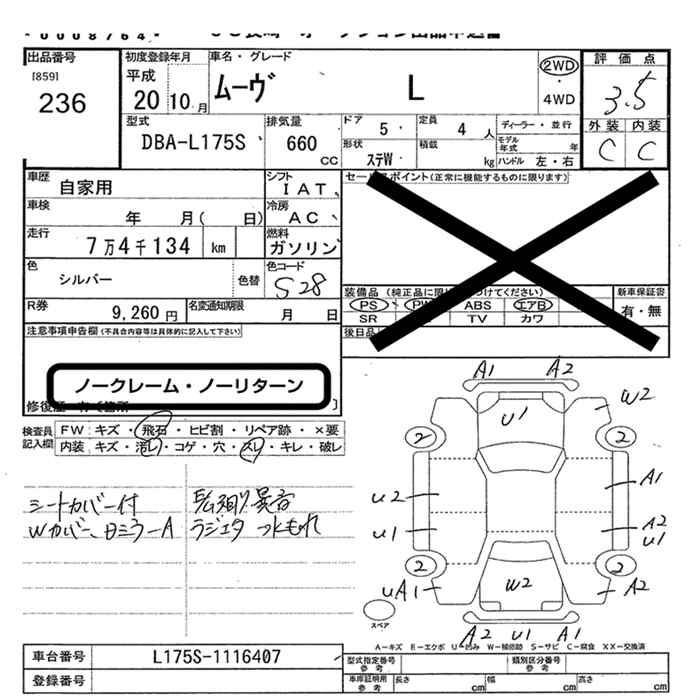 出品番号
[859]
236
初度登録年月
平成
20 10 月
車名・グレード
ムーヴ L
2WD
・
4WD
評価点
3.5
外装 内装
C C
型式
DBA-L175S
排気量
660
CC
ドア
5
定員
4 人
ディーラー・並行
モデル年式 年
形状
ステW
積載
kg
ハンドル 左・右
車歴
自家用
シフト
IAT
車検
年 月( 日)
冷房
AC
走行
7万4千134 km
燃料
ガソリン
色
シルバー
色替
色コード
S28
R券
9,260 円
名変通知期限
月 日
セー ポイント(正常に機能するものに限ります)
装備品(純正品に限 つけてください)
PS PW ABS エアB
SR TV カワ
新車保証書
有・無
後日品
注意事項申告欄(不具合内容等は具体的に記入して下さい)
ノークレーム・ノーリターン
検査員記入欄
FW キズ・飛石・ヒビ割・リペア跡・×要
内装 キズ・汚レ・コゲ・穴・スレ・キレ・破レ
シートカバー付
Wカバー、
ラジエタ 水もれ
A1 A2
U1 W2
2 2
U2 A1
U1 A2 U1
2 2
UA1 W2 A2
A2 U1 A1
スペア
A-キズ E-エクボ U-凹み W-補修跡 S-サビ C-腐食 XX-交換済
車台番号 L175S-1116407
登録番号
型式指定番号 参考
類別区分番号 参考
車庫証明用 参考
長さ cm 幅 cm 高さ cm